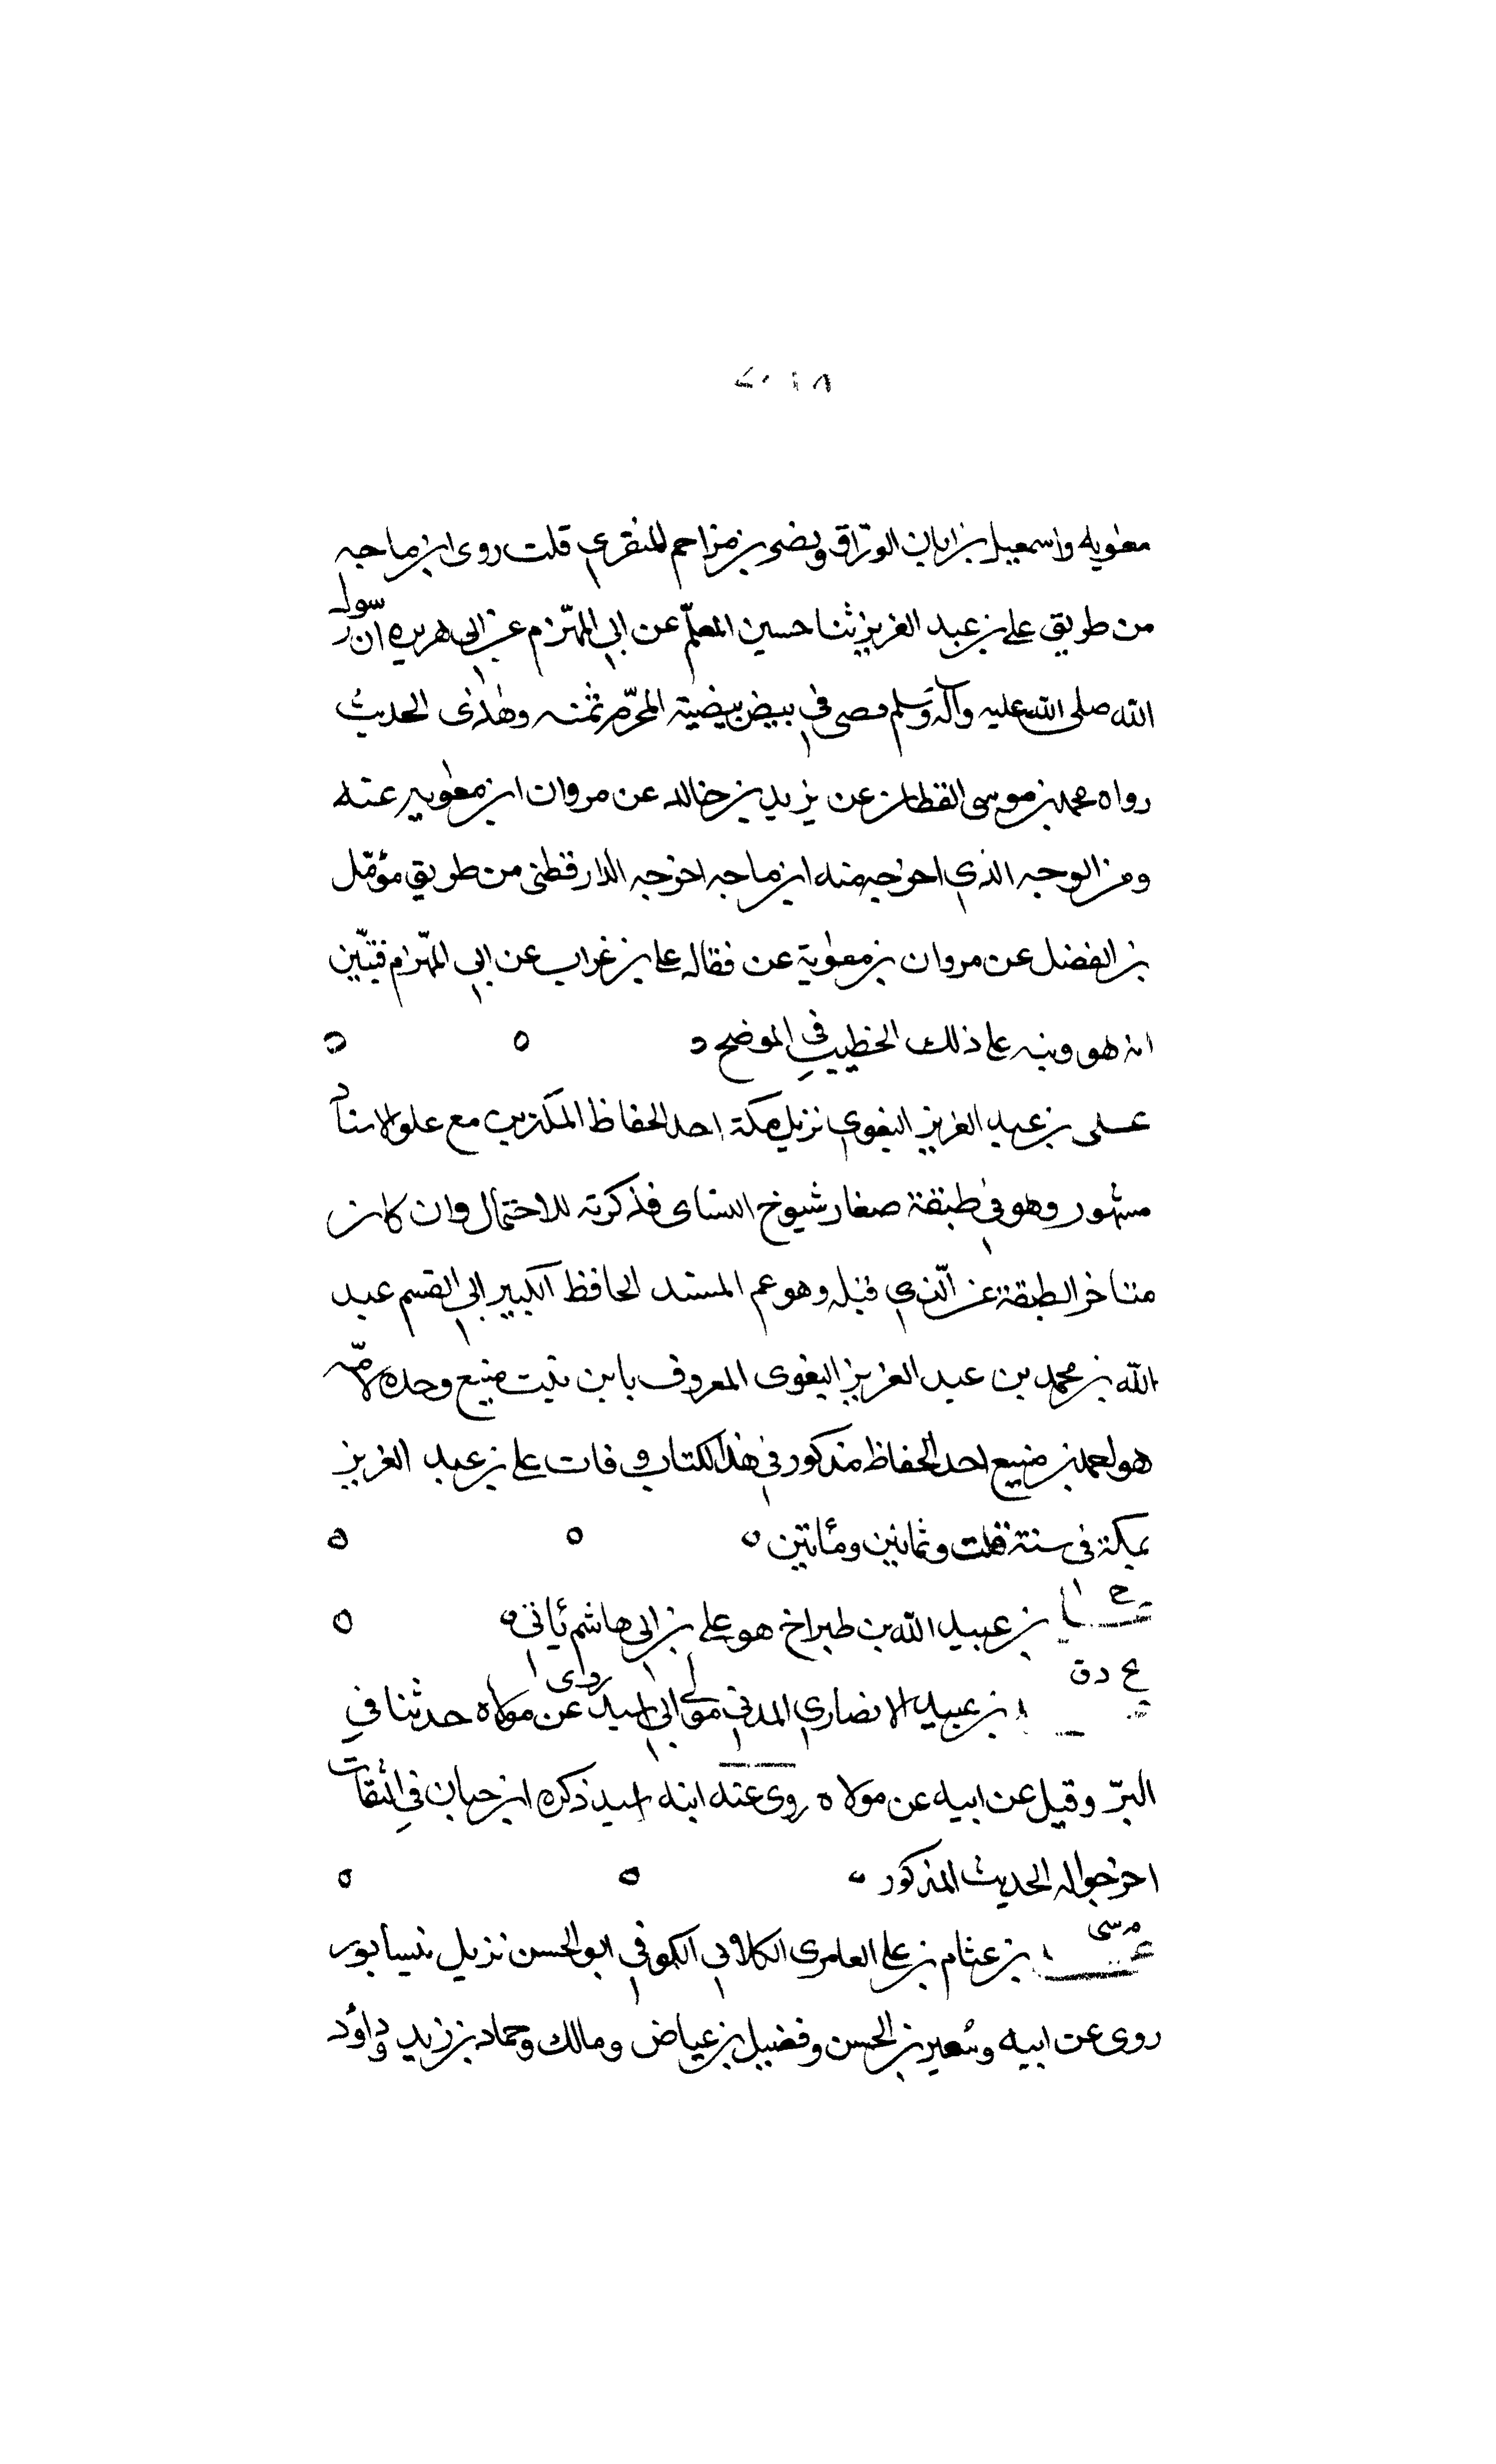 معٰويه واسمعيل بن ابان الورّاق ونصر بن مزاحم المنقري قلت روى ابن ماجه
من طريق على بن عبد العزيز ثنا حسين المعلّم عن ابى المهزّم عن ابى هريره ان رسول
الله صلى الله عليه وآله وسلم قصى في بيض بيضية المحرّم ثمنه وهٰذى الحديث
رواه محمد بن موسى القطان عن يزيد بن خالد عن مروان ابن معٰويه عنه
ومن الوجه الذي اخرجه منه ابن ماجه اخرجه الدارقطنى من طريق مؤمّل
بن الفضل عن مروان بن معٰوية عن فقال على بن غراب عن ابى المهزّم فتبيّن
انه هو ونبه على ذلك الخطيب في الموضح ه
على بن عبد العزيز البغوي نزيل مكة احد الحفاظ المكثرين مع علو الاسناد
مشهور وهو فى طبقة صغار شيوخ النساى فذكرته للاحتمال وان كان
متاخر الطبقة عن الّذي قبله وهو عم المسند الحافظ الكبير ابى القسم عبد
الله بن محمد بن عبد العزيز البغوى المعروف بابن بنت منيع وجده لامّه
هو احمد بن منيع احد الحفاظ مذكور فى هذا الكتاب وفات على بن عبد العزيز
بمكة فى سنة وثمانين ومأتين ه
بن عبيد الله بن طبراخ هو على بن ابى هاشم يأتى ه
بخ د ق
بن عبيد الانصاري المدنى مولى ابى اسيد روى عن مولاه حدثنا فى
البرّ وقيل عن ابيه عن مولاه روى عنه ابنه اسيد ذكره ابن حبان فى الثقات
اخرجوا له الحديث المذكور ه
م سى
بن عثام بن على العامرى الكلابى الكوفى ابو الحسن نزيل نيسابور
روى عن ابيه وسُعير بن الخمس وفضيل بن عياض ومالك وحماد بن زيد وداؤد